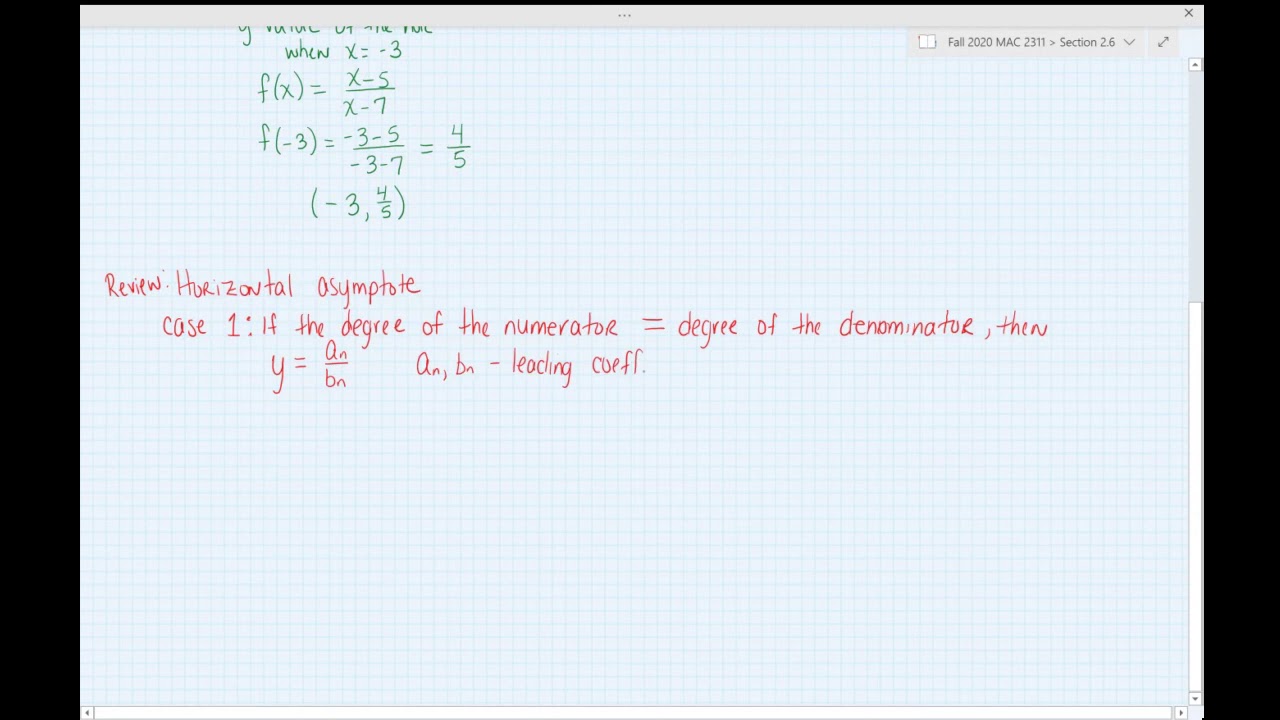 ...
Fall 2020 MAC 2311 > Section 2.6
y value of the hole
when x = -3
f(x) = \frac{x-5}{x-7}
f(-3) = \frac{-3-5}{-3-7} = \frac{4}{5}
(-3, \frac{4}{5})
Review: Horizontal asymptote
case 1: If the degree of the numerator = degree of the denominator, then
y = \frac{a_n}{b_n}    a_n, b_n - leading coeff.